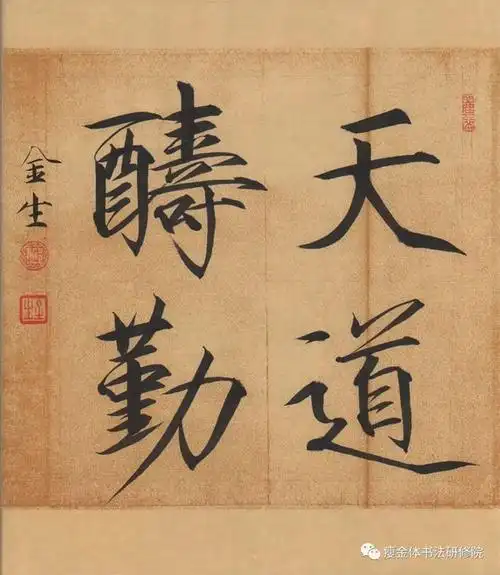 天道
醻勤
金生
瘦金体书法研修院